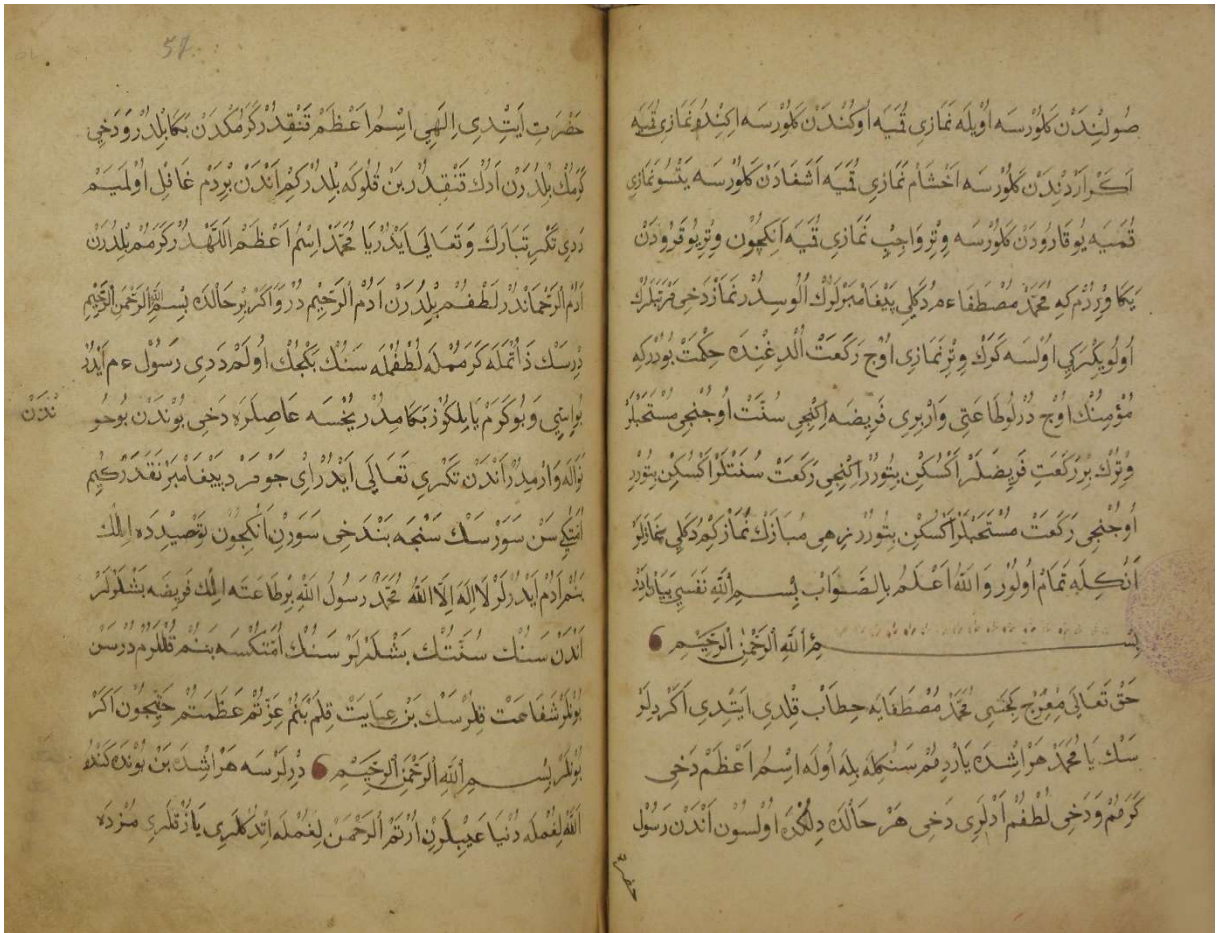 صُولِنْدَنْ كَلُورْسَه اُوَيْلَه نَمَازِى قُمَيَه اُوكُنْدَنْ كَلُورْسَه اِكِنْدُو نَمَازِى قُمَيَه
اَكَرْ اَرْدِنْدَنْ كَلُورْسَه اَخْشَامْ نَمَازِى قُمَيَه اَشَغَادَنْ كَلُورْسَه يَتْسُو نَمَازِى
قُمَيَه يُوقَارُودَنْ كَلُورْسَه وِتْرِ وَاجِبْ نَمَازِى قُمَيَه اَنِكِچُونْ وِتْرِ يُوقَرُودَنْ
يَكَا وِرِرُمْ كِه مُحَمَّدْ مُصْطَفَاءم دُكَلِى پَيْغَامْبَرْلَرُكْ اُلُوسِدُرْ نَمَازْ دَخِى
اُولُو يِكْرَكِى اُولْسَه كَرَكْ وِتْرِ نَمَازِى اُوچْ رَكَعَتْ اُلْدِغِنْدَه حِكْمَتْ بُودُرْكِه
مُؤْمِنُكْ اُوچْ دُرْلُو طَاعَتِى وَارْ بِرِى فَرِيضَه اِكِنْجِى سُنَّتْ اُوجُنْجِى مُسْتَحَبْلَرْ
وِتْرُكْ بِرْ رَكَعَتِ فَرِيضَلَرْ اَكْسُكِنْ بِتُورُرْ اِكِنْجِى رَكَعَتْ سُنَّتْلَرْ اَكْسُكِنْ بِتُورُرْ
اُوجُنْجِى رَكَعَتْ مُسْتَحَبْلَرْ اَكْسُكِنْ بِتُورُرْ زِهِى مُبَارَكْ نَمَازْ كِمْ دُكَلِى نَمَازْلَرْ
اَنُكِلَه تَمَامْ اُولُورْ وَاللهُ اَعْلَمُ بِالصَّوَابْ بِسْمِ اللهِ تَفْسِيرِى
بِسْمِ اللهِ الرَّحْمٰنِ الرَّحِيمِ
حَقْ تَعَالَى مِعْرَجْ كِجَسِى مُحَمَّدْ مُصْطَفَايَه خِطَابْ قِلْدِى اَيَتْدِى اَكَرْ دِلَرْ
سَكْ يَا مُحَمَّدْ هَرْ اِشْدَه يَارْدِمُمْ سَنُكْلَه بِلَه اُولَه اِسْمُ اَعْظَمْ دَخِى
كَرَمُمْ وَدَخِى لُطْفُمْ اَدْلَرِى دَخِى هَرْ حَالْدَه دِلُكْدَه اُولْسُونْ اَنْدَنْ رَسُولْ
حضرت
57
حَضْرَتِ اَيَتْدِى اِلٰهِى اِسْمُ اَعْظَمْ قَنْقِدُرْ كَرَمُكْدَنْ بَكَا بِلْدُرْ وَدَخِى
كَرَمُكْ بِلْدُرَنْ اَدُكْ قَنْقِدُرْ بَنْ قُلُوكَه بِلْدُرْ كِمْ اَنْدَنْ بِرْدَمْ غَافِلْ اُولْمَيَمْ
دِدِى تَكْرِ تَبَارَكَ وَتَعَالَى اَيَدُرْ يَا مُحَمَّدْ اِسْمُ اَعْظَمْ اَللّٰهْدُرْ كَرَمُمْ بِلْدُرَنْ
اَدُمْ اَلرَّحْمَانْدُرْ لُطْفُمْ بِلْدُرَنْ اَدُمْ اَلرَّحِيمْدُرْ وَاكَرْ بِرْ حَالْدَه بِسْمِ اللهِ الرَّحْمٰنِ الرَّحِيمِ
دِرْسَكْ ذَاتُمْلَه كَرَمُمْلَه لُطْفُمْلَه سَنُكْ بِكِجُكْ اُولَمْ دِدِى رَسُولْ ءم اَيَدُرْ
بُو اِسْمِى وَبُو كَرَمْ يَا يِلَكُوزْ بَكَامِدُرْ يُخْسَه عَاصِلَرَه دَخِى بُونْدَنْ
نْدَنْ
نَوَالَه وَارْمِدُرْ اَنْدَنْ تَكْرِى تَعَالَى اَيَدُرْ اَىْ جَوْمَرْدْ پَيْغَامْبَرْ نَقَدَرْ كِيمْ
اُمَّتُكِى سَنْ سَوَرْسَكْ سَنْجَه بَنْ دَخِى سَوَرَنْ اَنُكِچُونْ تَوْحِيدْدَه اِلْكْ
بَنُمْ اَدُمْ اَيَدُرْلَرْ لَا اِلٰهَ اِلَّا اللهُ مُحَمَّدْ رَسُولُ اللهِ بِرْ طَاعَتَه اِلْكْ فَرِيضَه بَشْلَرْلَرْ
اَنْدَنْ سَنُكْ سُنَّتُكْ بَشْلَرْلَرْ سَنُكْ اُمَّتُكْسَه بَنُمْ قُلْلَرُمْ دُرْ سَنْ
بُونْلَرْ شَفَاعَتْ قِلُرْسَكْ بَنْ عِنَايَتْ قِلَمْ بَنُمْ عِزَّتُمْ عَظَمَتُمْ حَقِّچُونْ اَكَرْ
بُونْلَرْ بِسْمِ اللهِ الرَّحْمٰنِ الرَّحِيمِ دِرْلَرْسَه هَرْ اِشْدَه بَنْ بُونْدَه كَنْدُ
اَللهْ لِغُمْلَه دُنْيَا عَيْبْلَرِنْ اُرْتَمْ اَلرَّحْمٰنْ لِغُمْلَه اِتْدُكْلَرِى يَازُقْلَرِى مُزْدَه